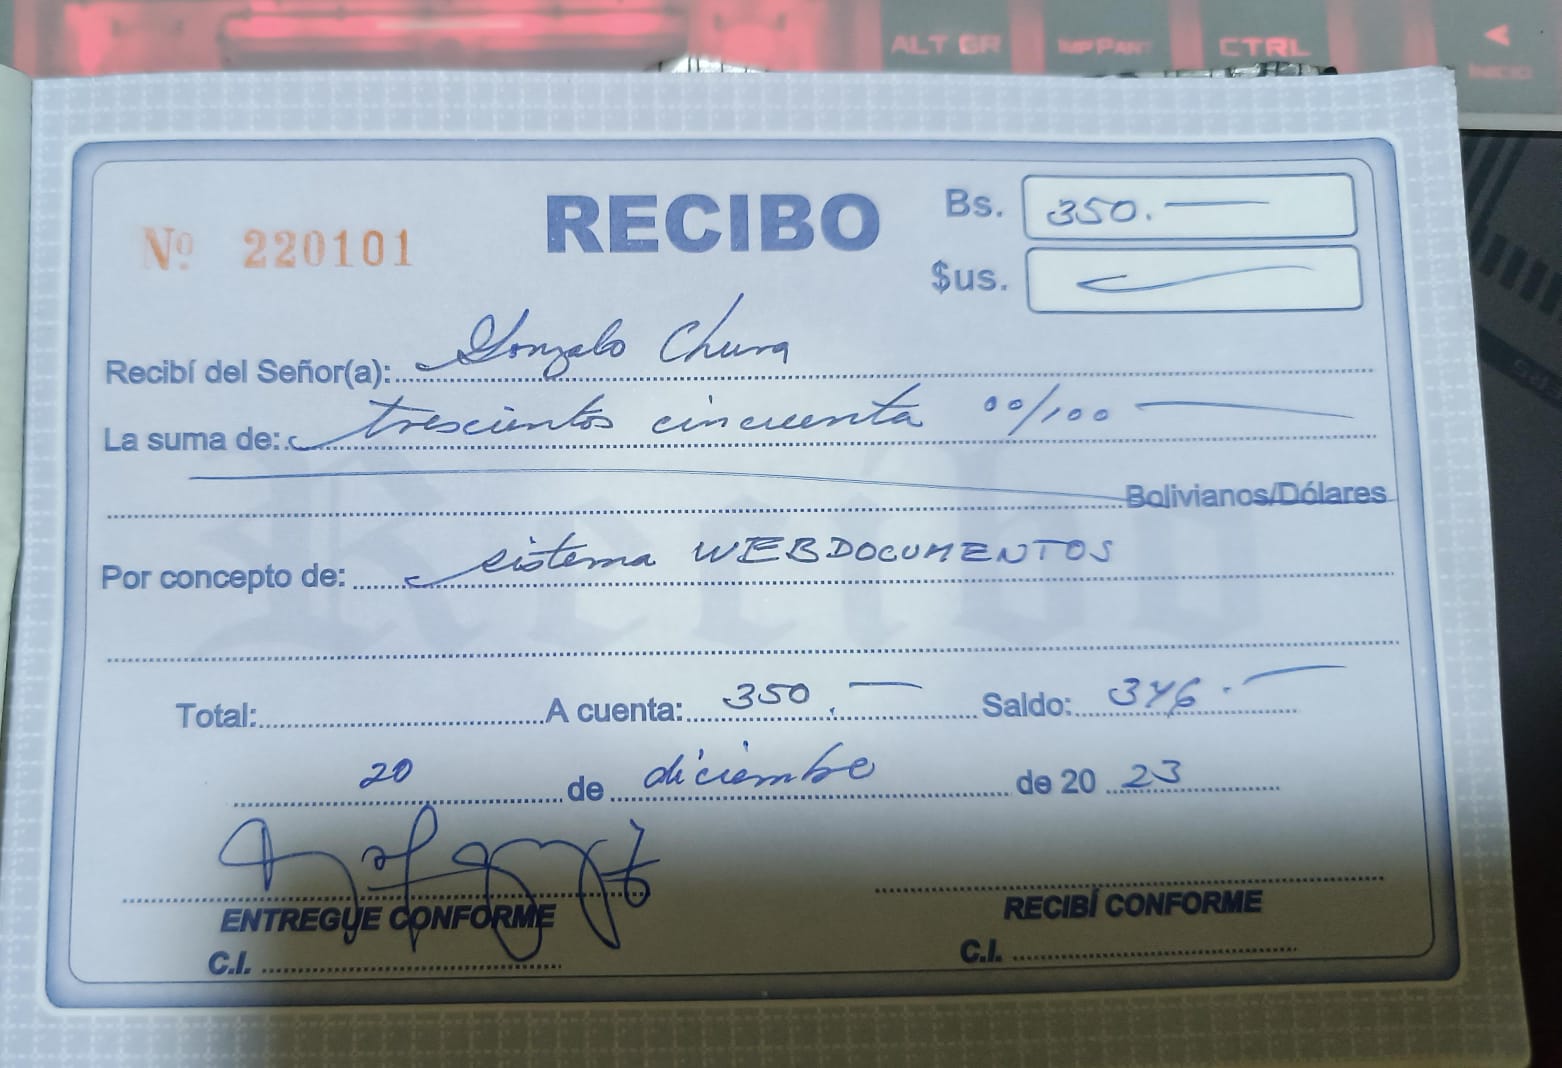 ALT GR IMP PANT CTRL
INICIO
Nº 220101
RECIBO
Bs. 350.
$us.
Recibí del Señor(a): Gonzalo Chura
La suma de: trescientos cincuenta 00/100
Bolivianos/Dólares
Por concepto de: sistema WEBDOCUMENTOS
Recibo
Total: A cuenta: 350. Saldo: 346.
20 de diciembre de 2023
ENTREGUE CONFORME
RECIBÍ CONFORME
C.I.
C.I.